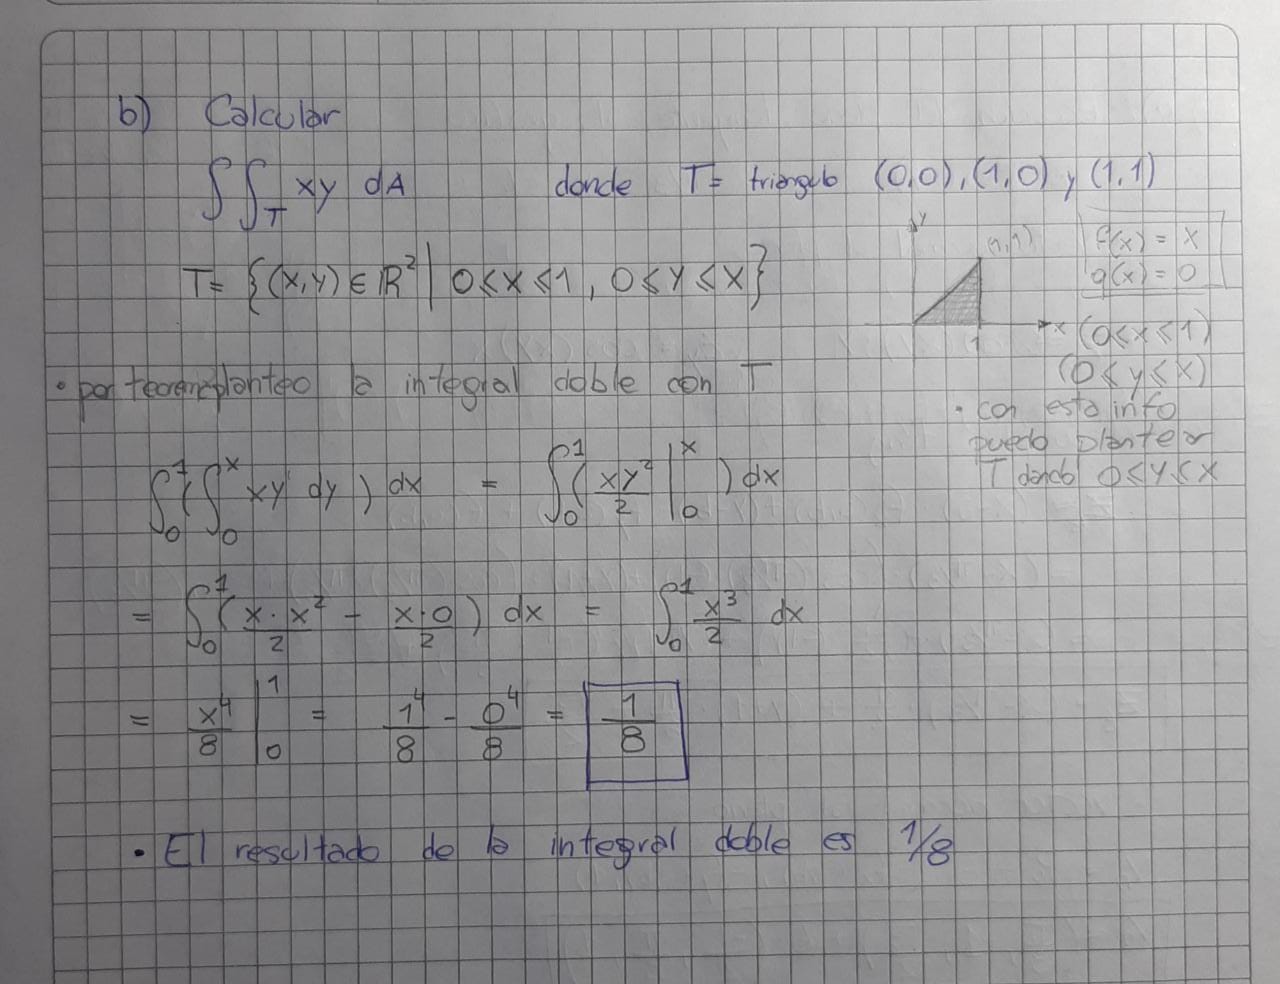 b) Calcular
∫∫_T xy dA donde T= triángulo (0,0), (1,0) y (1,1)
y
(1,1)
x
1
f(x) = x
g(x) = 0
T= {(x,y) ∈ ℝ² | 0≤x≤1, 0≤y≤x}
(0≤x≤1)
(0≤y≤x)
• con esta info
puedo plantear
T donde 0≤y≤x
• por planteo la integral doble con T
∫₀¹(∫₀ˣ xy dy) dx = ∫₀¹( xy²/2 |₀ˣ ) dx
= ∫₀¹( x·x²/2 - x·0/2 ) dx = ∫₀¹ x³/2 dx
= x⁴/8 |₀¹ = 1⁴/8 - 0⁴/8 = 1/8
• El resultado de la integral doble es 1/8